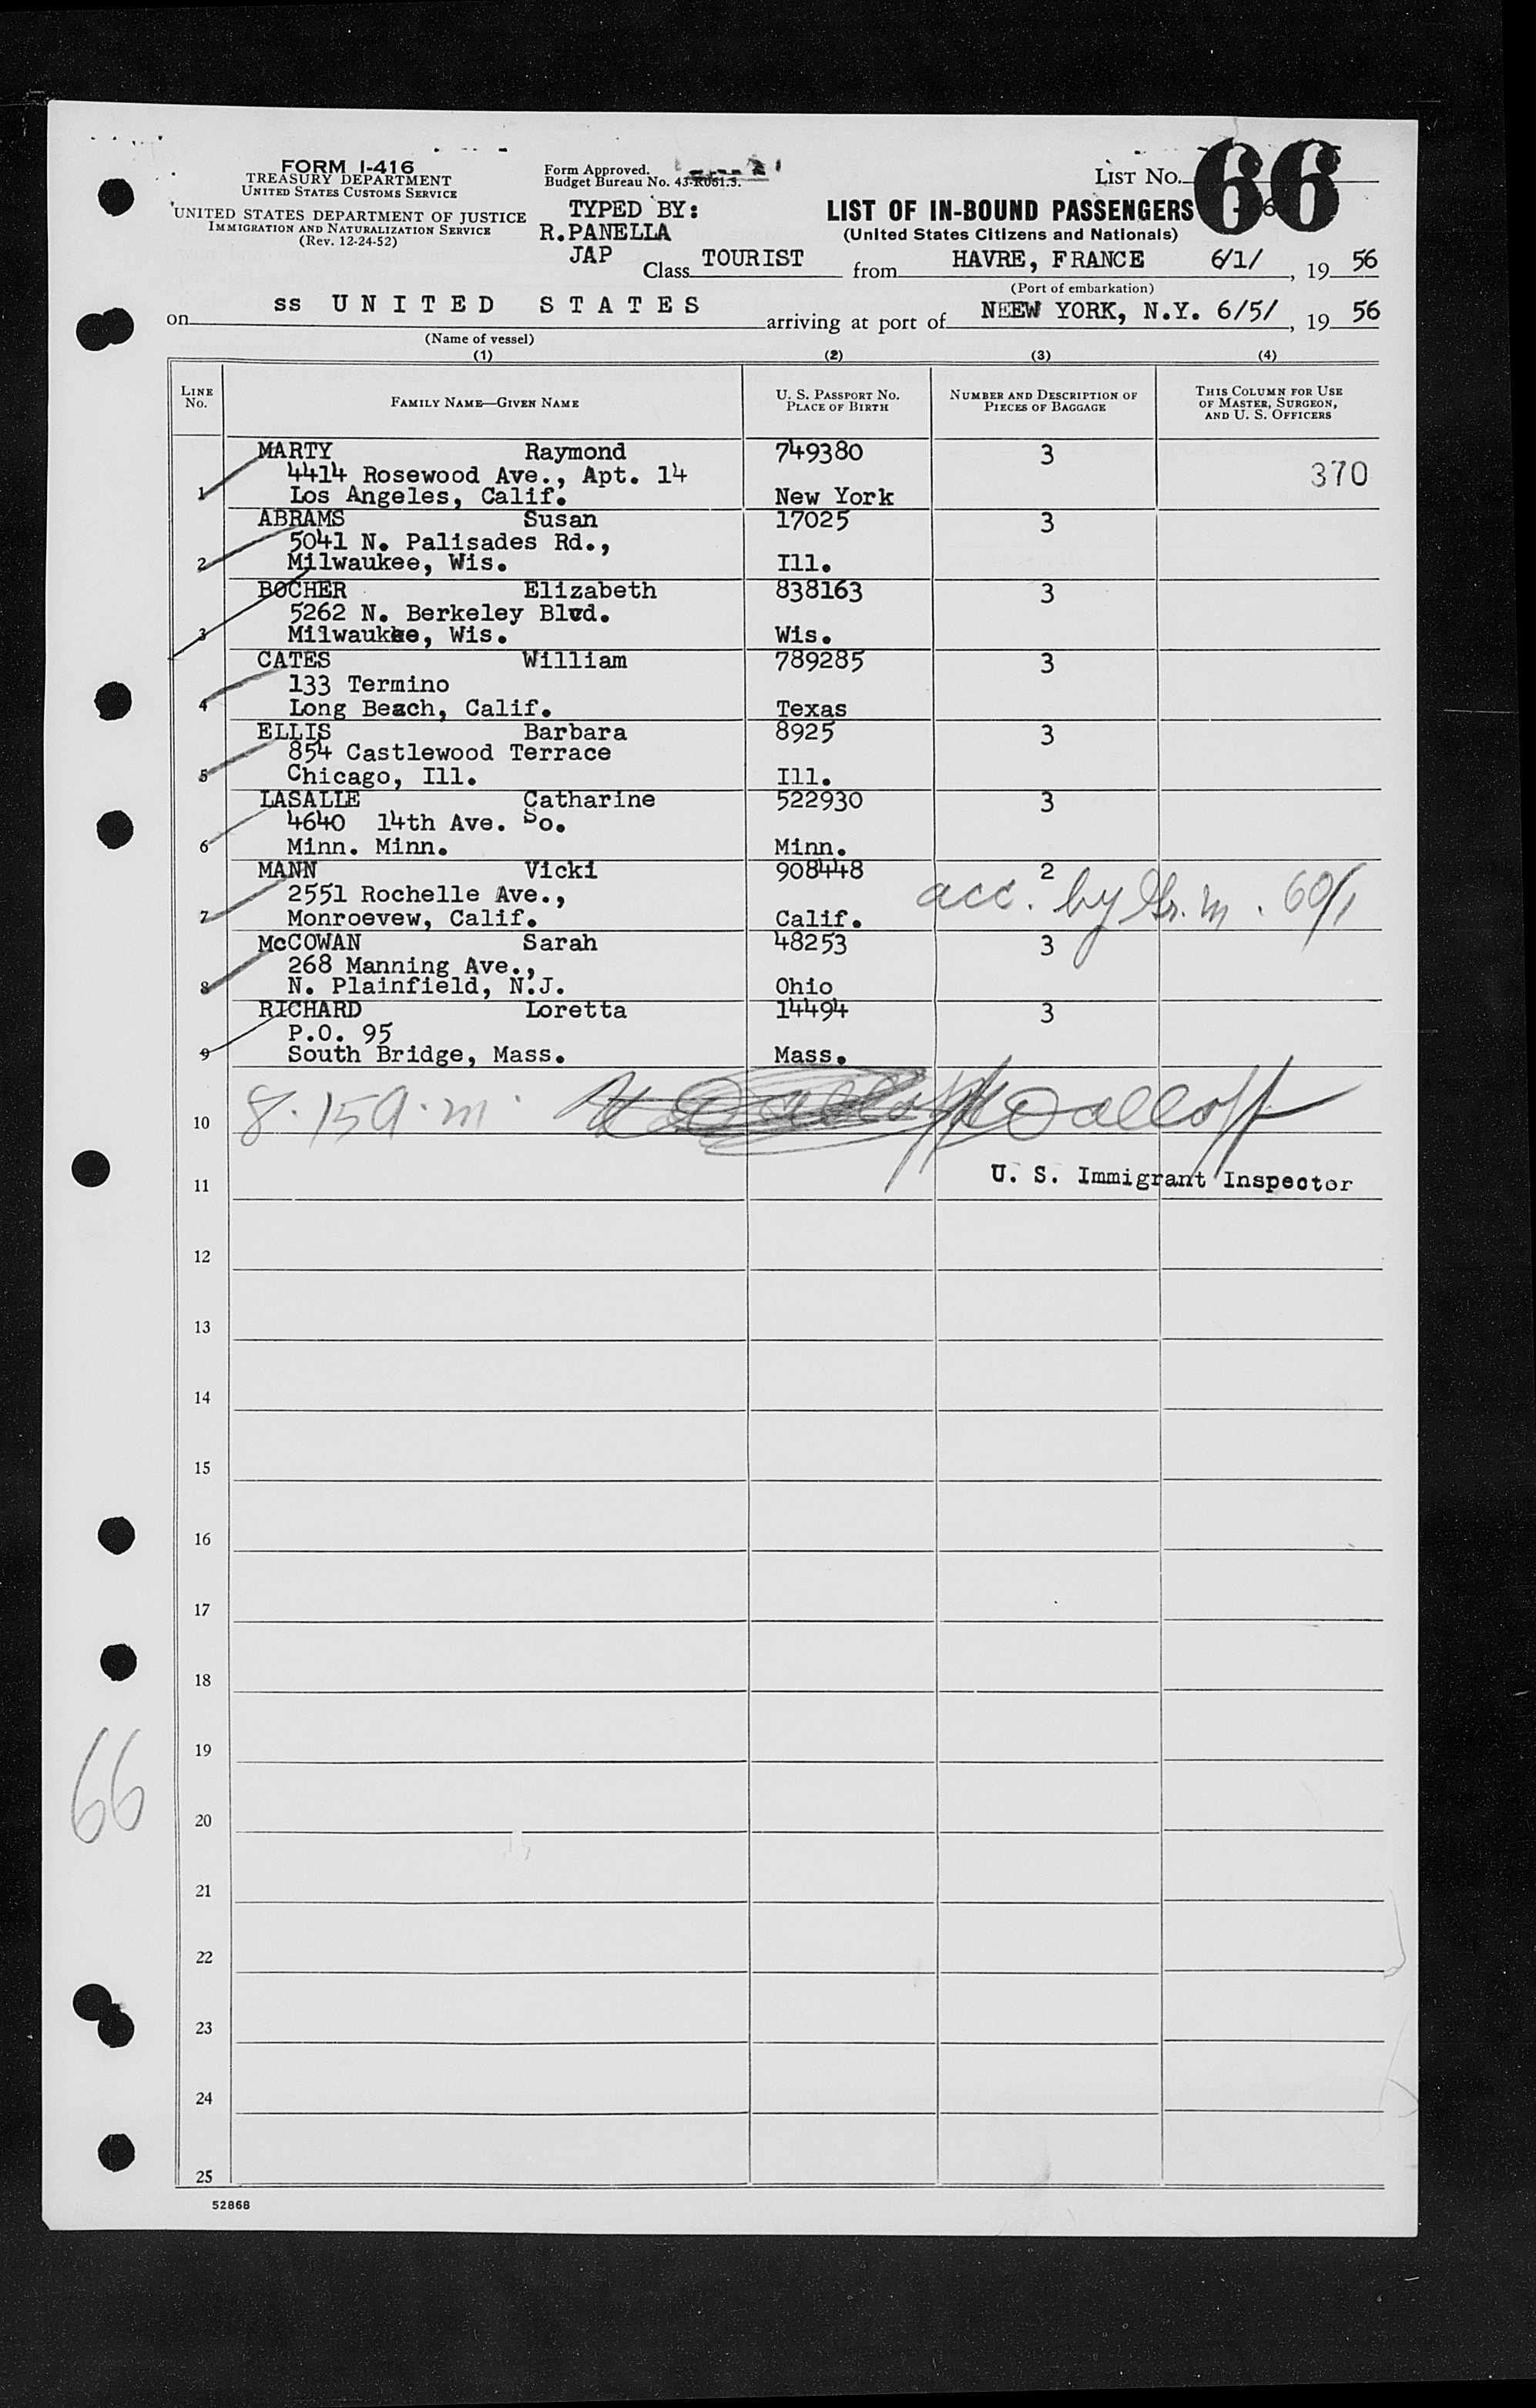 FORM I-416
TREASURY DEPARTMENT
UNITED STATES CUSTOMS SERVICE
UNITED STATES DEPARTMENT OF JUSTICE
IMMIGRATION AND NATURALIZATION SERVICE
(Rev. 12-24-52)
Form Approved.
Budget Bureau No. 43-R051.3.
TYPED BY:
R.PANELLA
JAP
LIST No. 66
LIST OF IN-BOUND PASSENGERS
(United States Citizens and Nationals)
Class TOURIST from HAVRE, FRANCE 6/1/, 19 56
(Port of embarkation)
on ss UNITED STATES arriving at port of NEEW YORK, N.Y. 6/5/, 19 56
(Name of vessel)
(1) (2) (3) (4)
LINE No. FAMILY NAME—GIVEN NAME U. S. PASSPORT NO. PLACE OF BIRTH NUMBER AND DESCRIPTION OF PIECES OF BAGGAGE THIS COLUMN FOR USE OF MASTER, SURGEON, AND U. S. OFFICERS
MARTY Raymond 749380 3
4414 Rosewood Ave., Apt. 14 370
1 Los Angeles, Calif. New York
ABRAMS Susan 17025 3
5041 N. Palisades Rd.,
2 Milwaukee, Wis. Ill.
BOCHER Elizabeth 838163 3
5262 N. Berkeley Blvd.
3 Milwaukee, Wis. Wis.
CATES William 789285 3
133 Termino
4 Long Beach, Calif. Texas
ELLIS Barbara 8925 3
854 Castlewood Terrace
5 Chicago, Ill. Ill.
LASALLE Catharine 522930 3
4640 14th Ave. So.
6 Minn. Minn. Minn.
MANN Vicki 908448 2
2551 Rochelle Ave., acc. by Gr. m. 60/1
7 Monroevew, Calif. Calif.
McCOWAN Sarah 48253 3
268 Manning Ave.,
8 N. Plainfield, N.J. Ohio
RICHARD Loretta 14494 3
P.O. 95
9 South Bridge, Mass. Mass.
10 8.15 a.m.
11 U. S. Immigrant Inspector
12
13
14
15
16
17
18
19
66
20
21
22
23
24
25
52868